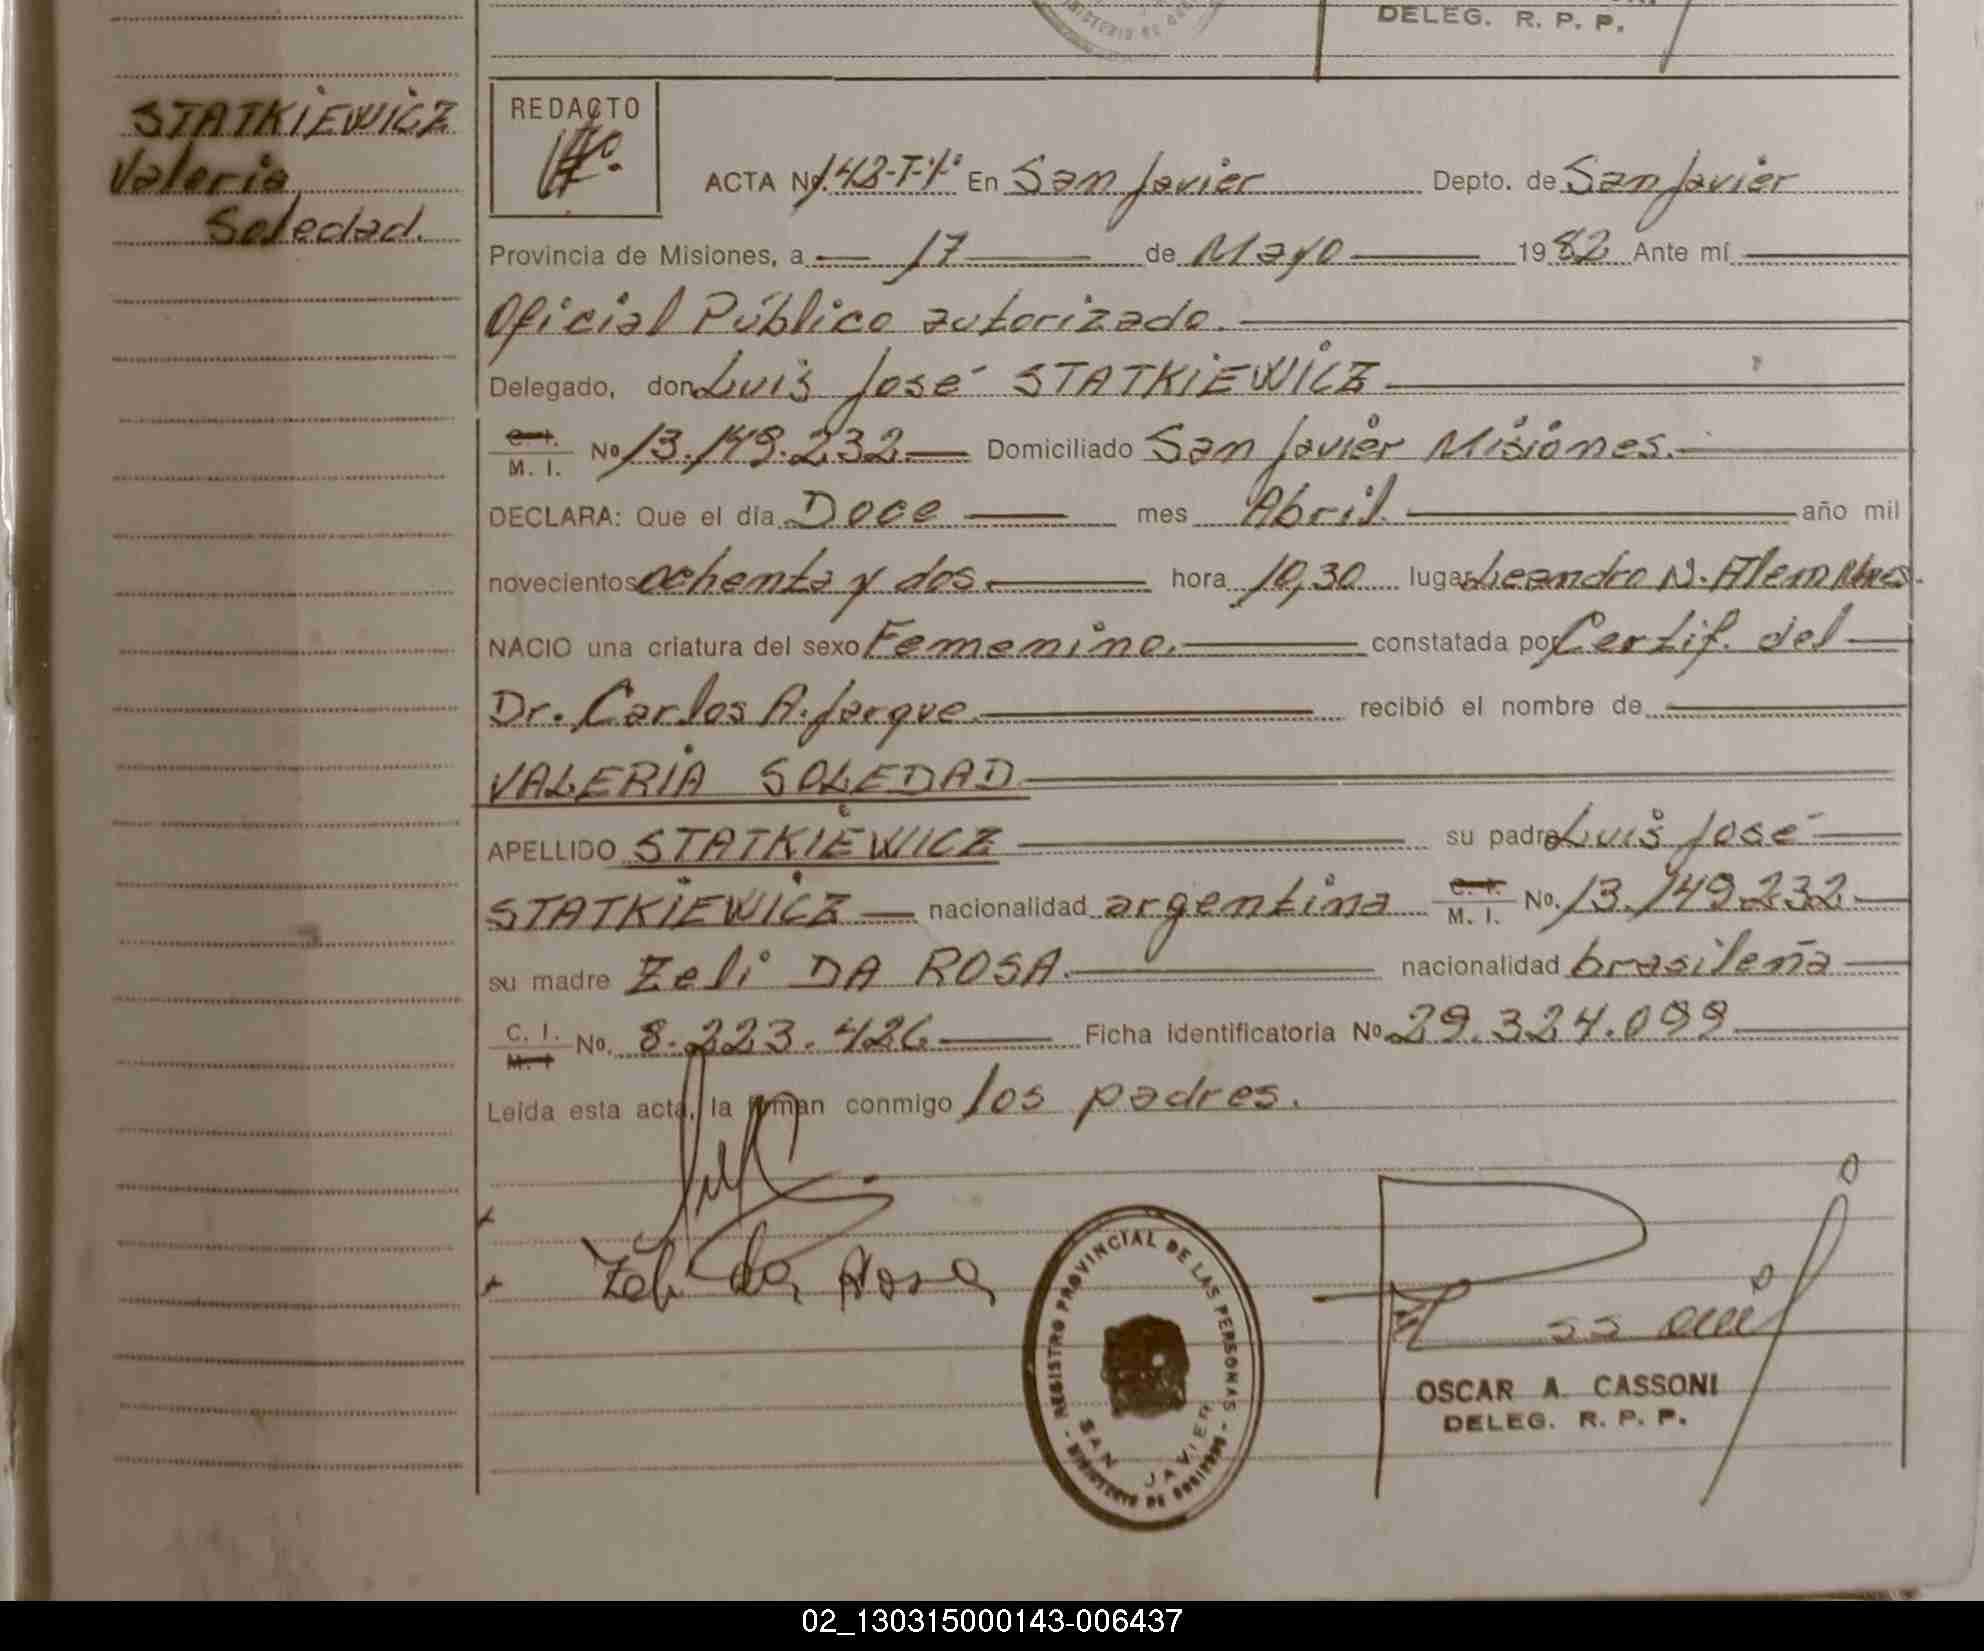 DELEG. R. P. P.
STATKIEWICZ
Valeria
Soledad.
REDACTO
ACTA No. 148-T-1º En San Javier Depto. de San Javier
Provincia de Misiones, a 17 de Mayo 1982 Ante mí
Oficial Público autorizado.
Delegado, don Luis José STATKIEWICZ
C. I. M. I. No 13.149.232 Domiciliado San Javier Misiones.
DECLARA: Que el día Doce mes Abril año mil
novecientos ochenta y dos. hora 10,30 lugar Leandro N. Alem Mnes.
NACIO una criatura del sexo Femenino. constatada por Certif. del
Dr. Carlos A. Jarque recibió el nombre de
VALERIA SOLEDAD
APELLIDO STATKIEWICZ su padre Luis José
STATKIEWICZ nacionalidad argentina C. I. M. I. No. 13.149.232
su madre Zeli DA ROSA. nacionalidad brasileña
C. I. M. I. No. 8.223.426 Ficha identificatoria No 29.324.099
Leída esta acta, la firman conmigo los padres.
Zeli da Rosa
REGISTRO PROVINCIAL DE LAS PERSONAS
SAN JAVIER
MINISTERIO DE GOBIERNO
OSCAR A. CASSONI
DELEG. R. P. P.
02_130315000143-006437